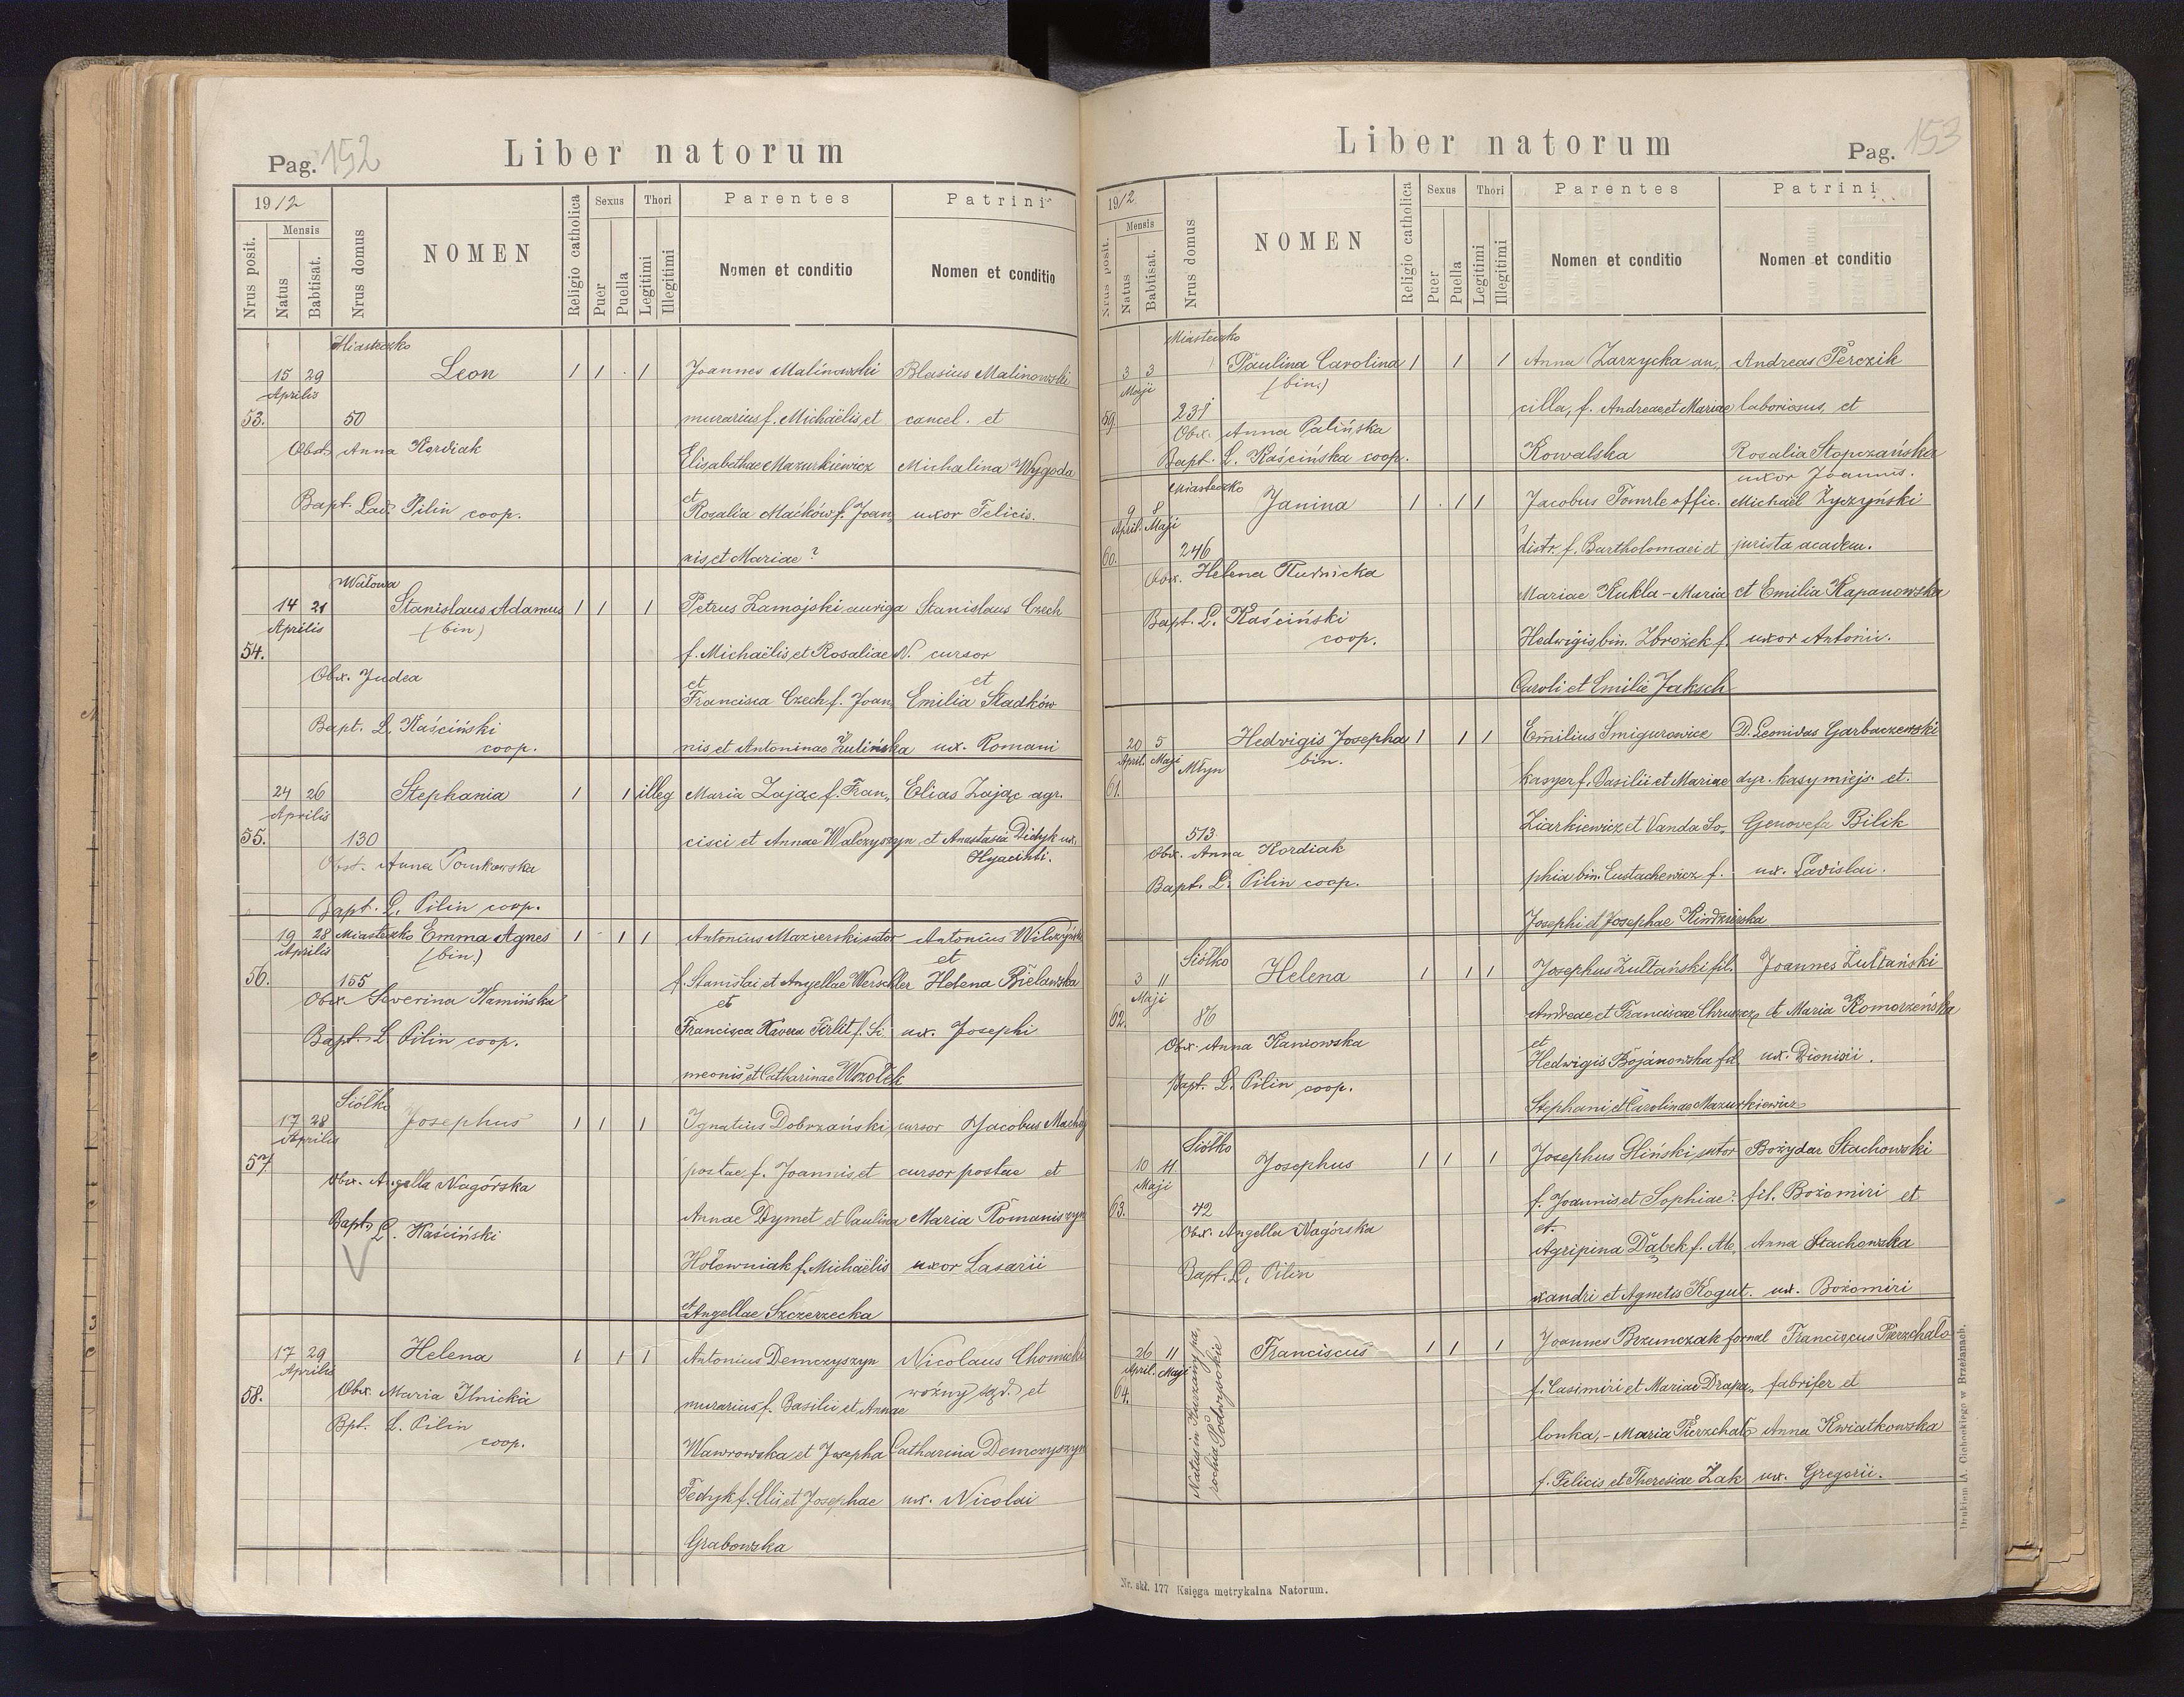 Pag. 152
Liber natorum
1912
Mensis
Nrus posit.
Natus
Babtisat.
Nrus domus
NOMEN
Religio catholica
Sexus
Puer
Puella
Thori
Legitimi
Illegitimi
Parentes
Nomen et conditio
Patrini
Nomen et conditio
Miasteczko
15 29 Leon 1 1 1 Joannes Malinowski Blasius Malinowski
Aprilis
53. 50 murarius f. Michaëlis et cancel. et
Obst. Anna Kordiak
Elisabethae Mazurkiewicz Michalina Wygoda
et
Bapt. Lad. Pilin coop. Rosalia Maćków f. Joan, uxor Felicis.
nis et Mariae ?
Wałowa
14 21 Stanislaus Adamus 1 1 1 Petrus Zamojski auriga Stanislaus Czech
Aprilis (bin)
54. f. Michaëlis et Rosaliae N. cursor
Obx. Judea et et
Francisca Czech f. Joan, Emilia Stadków
Bapt. L. Kaściński
coop. nis et Antoninae Żulińska ux. Romani
24 26 Stephania 1 1 illeg Maria Zając f. Fran, Elias Zając agr.
Aprilis
55. 130 cisci et Annae Walczyszyn et Anastasia Didyk ux.
Obst. Anna Pomkowska Hyacinthi.
Bapt. L. Pilin coop.
19 28 Miasteczko Emma Agnes 1 1 1 Antonius Mazierski sutor Antonius Wilczyński
Aprilis (bin.) et
56. 155 f. Stanislai et Angellae Werschler Helena Bielawska
Obx. Severina Kamińska et
Francisca Xavera Tirlit f. Si ux. Josephi
Bapt. L. Pilin coop.
meonis et Catharinae Wrzołek
Siółko
17 28 Josephus 1 1 1 Ignatius Dobrzański cursor Jacobus Machaj
Aprilis
57 postae f. Joannis et cursor postae et
Obx. Angella Nagórska
Annae Dymet et Paulina Maria Romaniszyn
Bapt. L. Kaściński
Hołowniak f. Michaëlis uxor Lasarii
et Angellae Szczerzecka
17 29 Helena 1 1 1 Antonius Demczyszyn Nicolaus Chomicki
Aprilis
58. Obx. Maria Ilnicka murarius f. Basilii et Annae woźny sąd. et
Bpt. L. Pilin
coop. Wawrowska et Josepha Catharina Demczyszyn
Fedyk f. Elii et Josephae ux. Nicolai
Grabowska
Liber natorum
Pag. 153
1912
Mensis
Nrus posit.
Natus
Babtisat.
Nrus domus
NOMEN
Religio catholica
Sexus
Puer
Puella
Thori
Legitimi
Illegitimi
Parentes
Nomen et conditio
Patrini
Nomen et conditio
Miasteczko
3 3 Paulina Carolina 1 1 1 Anna Zarzycka an, Andreas Perczik
Maji (bin.)
59. 231 cilla, f. Andreae et Mariae laboriosus, et
Obx. Anna Palińska
Bapt. L. Kaścińska coop. Kowalska Rosalia Stopczańska
uxor Joannis.
Miasteczko
9 8 Janina 1 . 1 1 Jacobus Tomrle offic. Michaël Życzyński
April. Maji
60. 246 distr. f. Bartholomaei et jurista academ.
Obx. Helena Rudnicka
Mariae Kukla - Maria et Emilia Kapanowska
Bapt. L. Kaściński
coop. Hedwigis bin. Zbrożek f. uxor Antonii.
Caroli et Emilie Jaksch
20 5 Hedvigis Josepha 1 1 1 Emilius Śmigurowicz D. Leonidas Garbaczewski
April. Maji Młyn bin.
61. kasyer f. Basilii et Mariae dyr. kasy miejs. et.
513. Ziarkiewicz et Vanda So, Genovefa Bilik
Obx. Anna Kordiak
Bapt. L. Pilin coop. phia bin. Eustachewicz f. ux. Ladislai.
Josephi et Josephae Kindzierska
Siółko
3 11 Helena 1 1 1 Josephus Żułtański fil. Joannes Żułtański
Maji
62. 86 Andreae et Franciscae Chruszcz et Maria Komorzeńska
Obx. Anna Kaniowska et
Hedwigis Bojanowska fil ux. Dionisii.
Bapt. L. Pilin coop.
Stephani et Carolinae Mazurkiewicz
Siółko
10 11 Josephus 1 1 1 Josephus Gliński sutor Bożydar Stachowski
Maji
63. 42 f. Joannis et Sophiae ? fil. Bożomiri et
Obx. Angella Nagórska et.
Agripina Dąbek f. Ale, Anna Stachowska
Bapt. L. Pilin
xandri et Agnetis Kogut. ux. Bożomiri
26 11 Franciscus 1 1 1 Joannes Brzunczak fornal Franciscus Pierzchało
April. Maji
64. Natus in Kurzany pa,
rochia Podwysokie
f. Casimiri et Mariae Drapa, fabrifer et
lonka, - Maria Pierzchało Anna Kwiatkowska
f. Felicis et Theresiae Żak ux. Gregorii.
Nr. skł. 177 Księga metrykalna Natorum.
Drukiem A. Cichockiego w Brzeżanach.